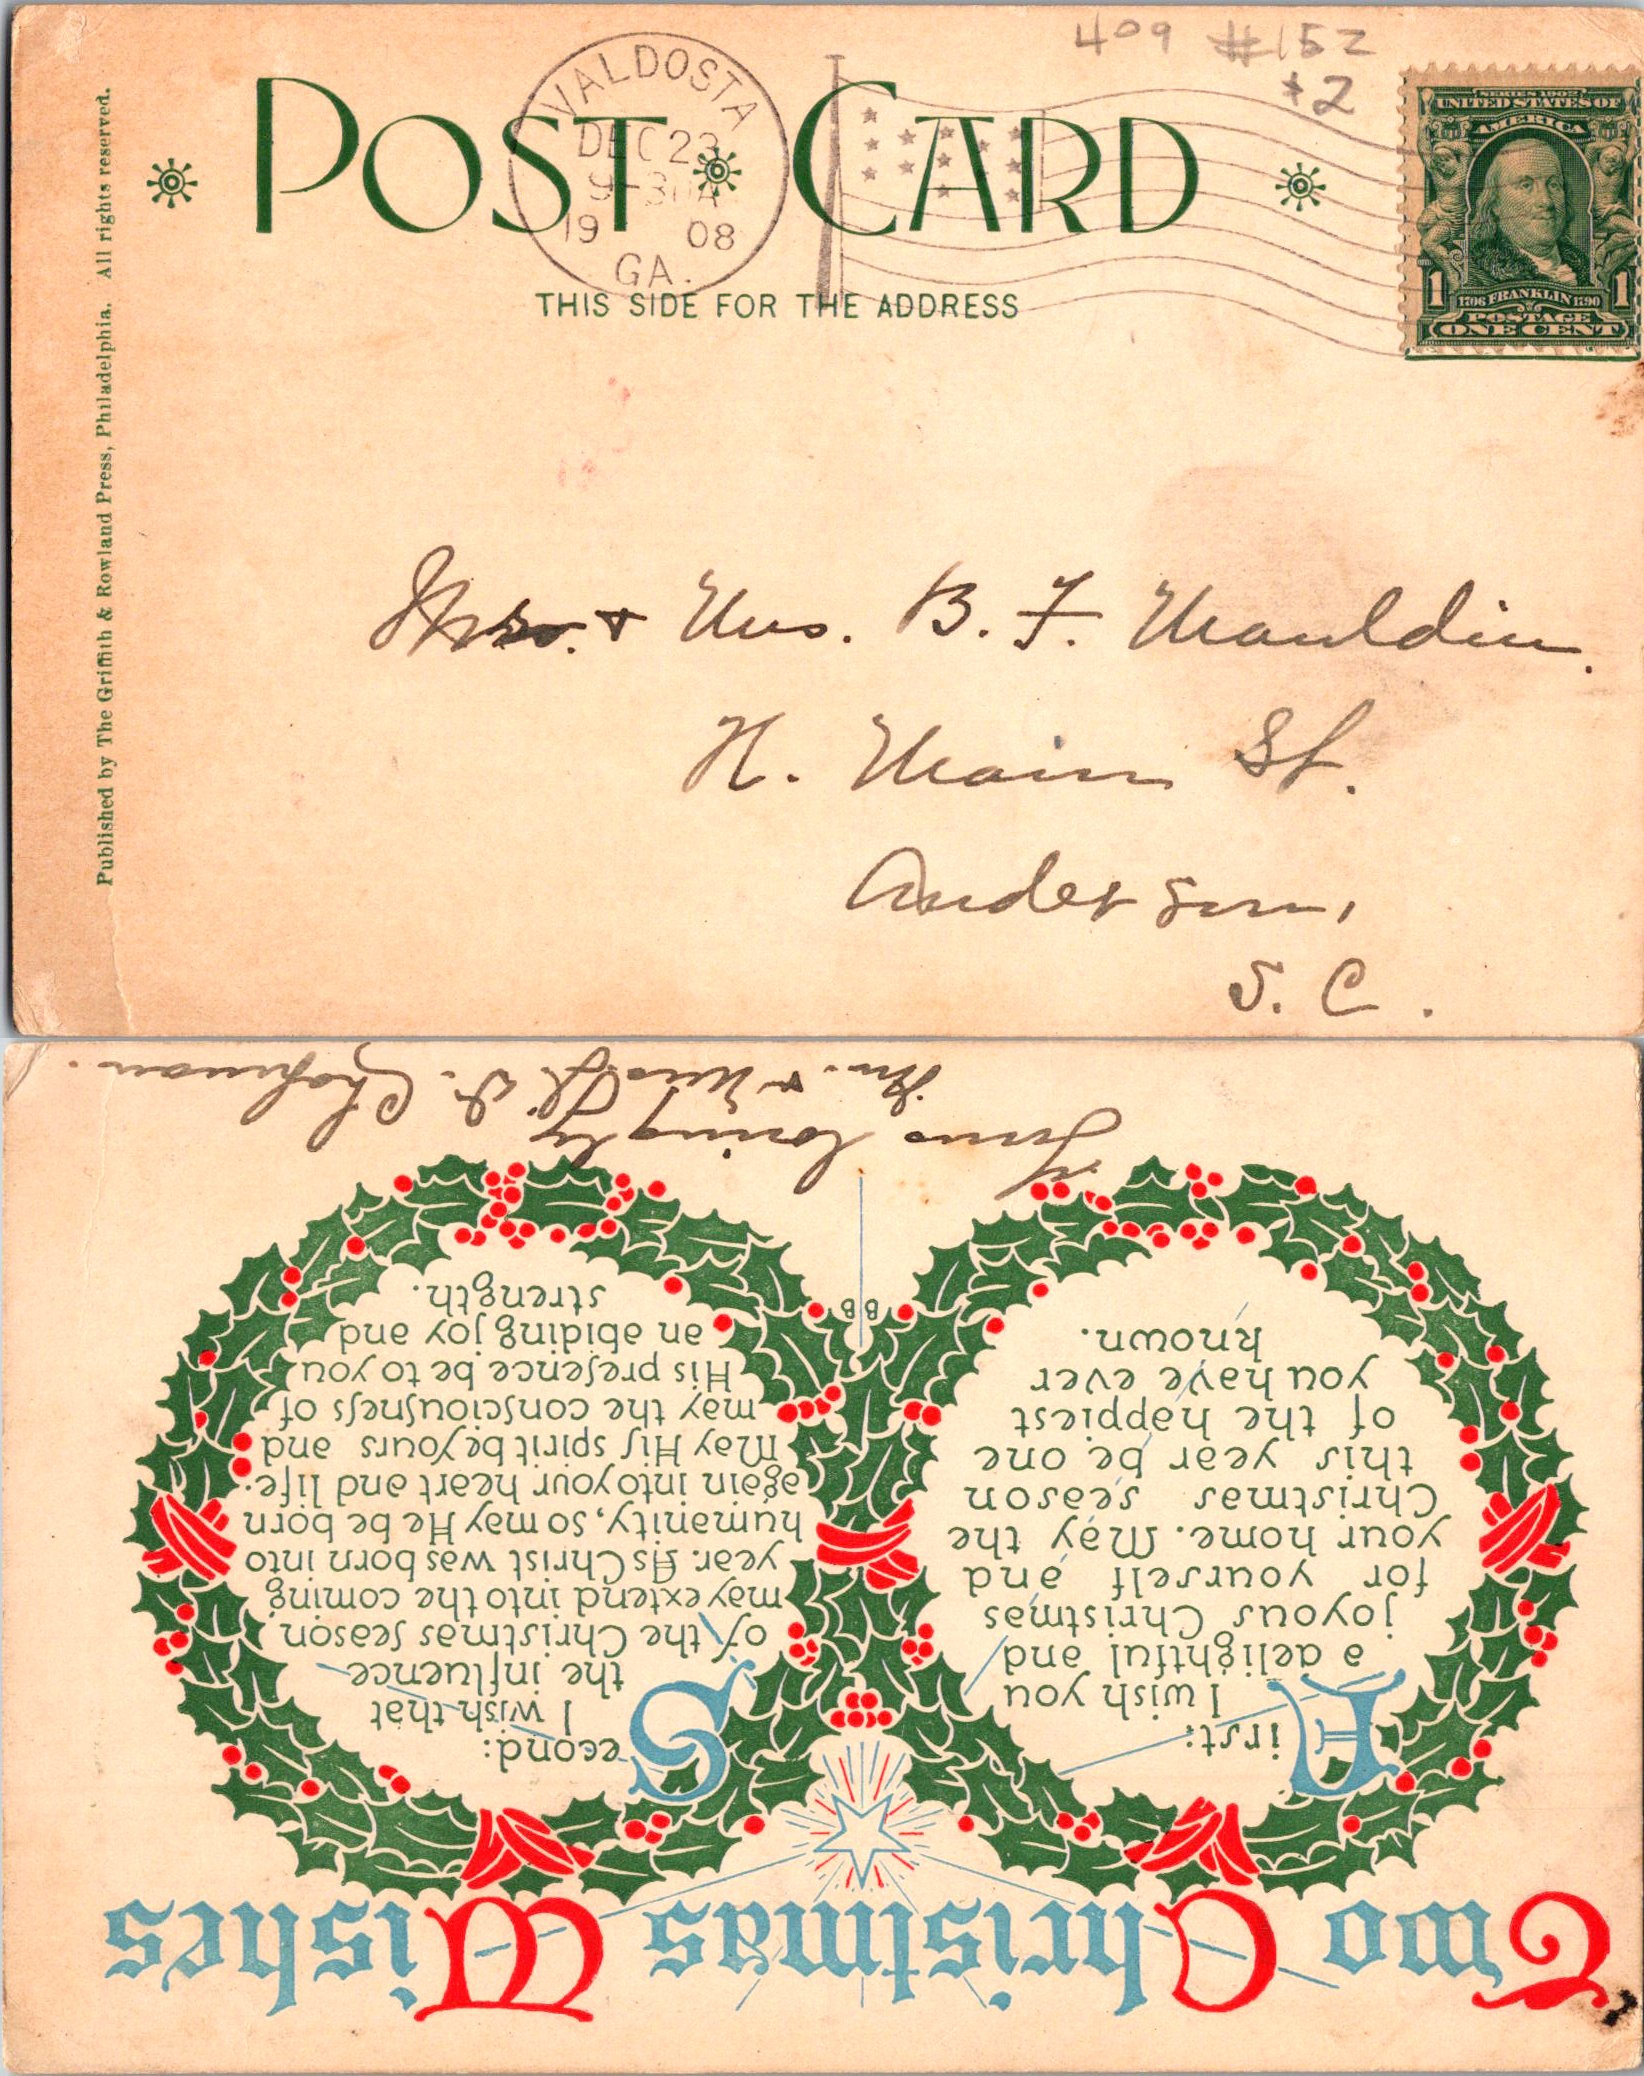 409 #152
$2
VALDOSTA
DEC 23
9-30A
19 08
GA.
POST CARD
THIS SIDE FOR THE ADDRESS
SERIES 1902
UNITED STATES OF
AMERICA
1 1706 FRANKLIN 1790 1
POSTAGE
ONE CENT
Published by The Griffith & Rowland Press, Philadelphia. All rights reserved.
Mr. & Mrs. B. F. Mauldin.
N. Main St.
Anderson,
S. C.
Two Christmas Wishes
First:
I wish you
a delightful and
joyous Christmas
for yourself and
your home. May the
Christmas season
this year be one
of the happiest
you have ever
known.
Second:
I wish that
the influence
of the Christmas season
may extend into the coming
year. As Christ was born into
humanity, so may He be born
again into your heart and life.
May His spirit be yours and
may the consciousness of
His presence be to you
an abiding joy and
strength.
BB
Yours lovingly
Mr. & Mrs. Chapman.